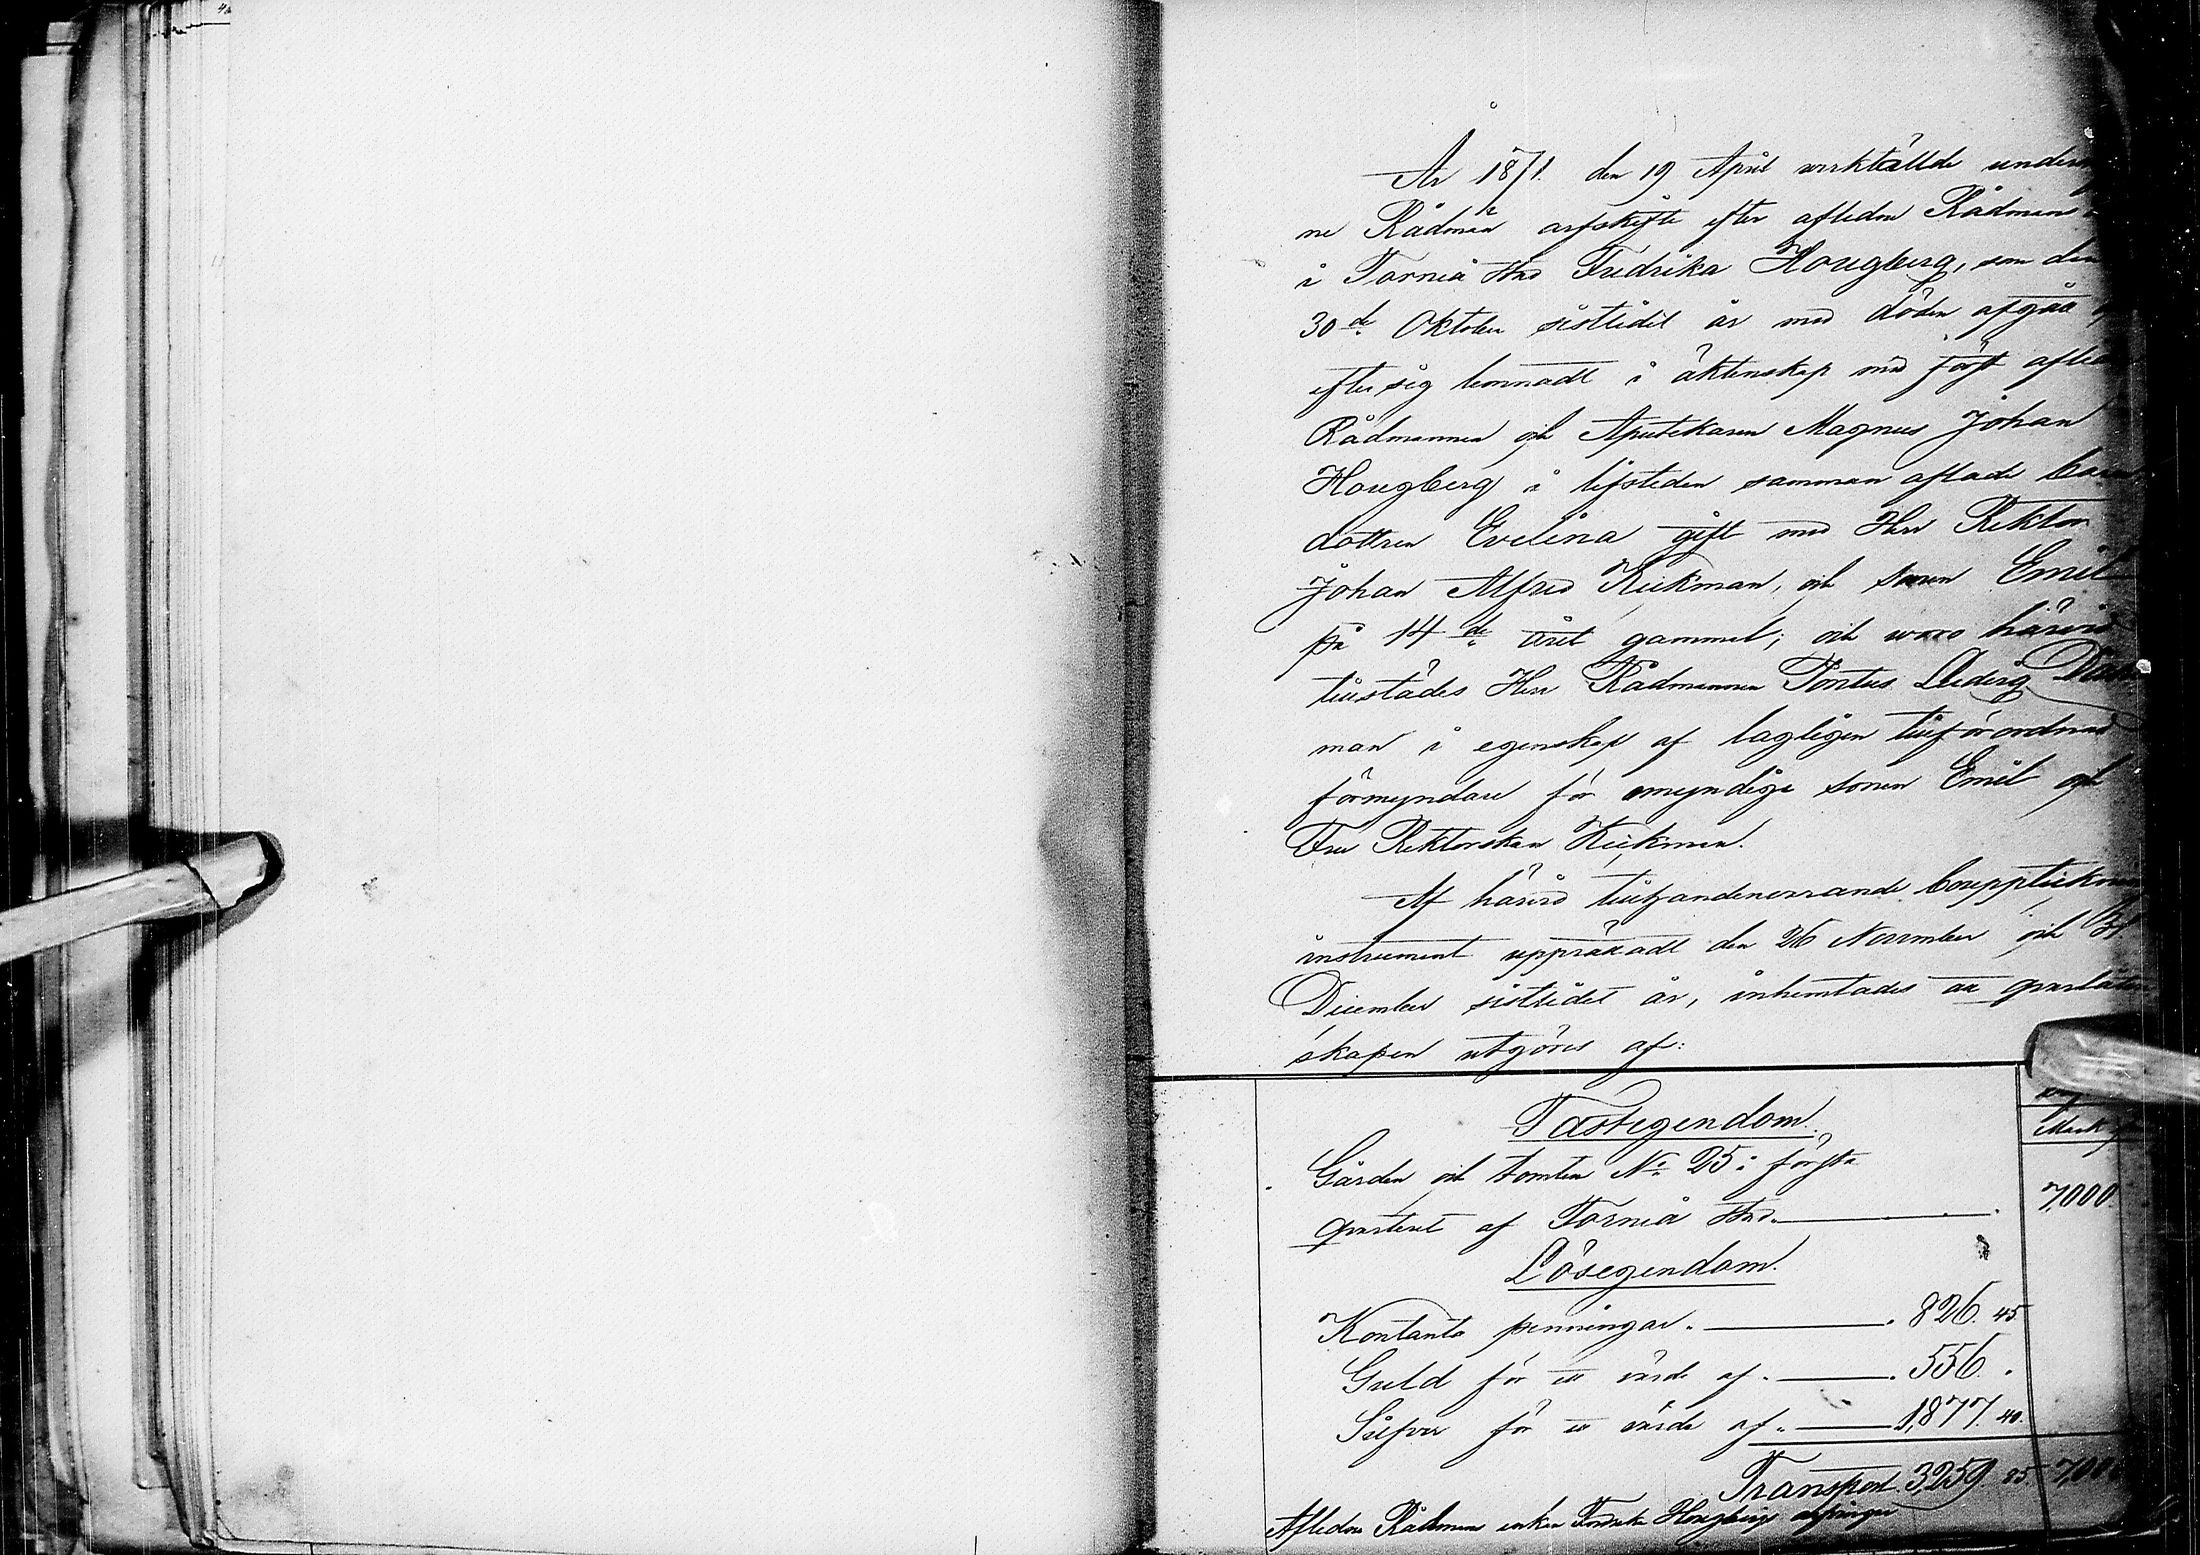 År 1871. den 19 April verkställde
ne Rådmän arfskifte efter aflidna Rådmans
i Torneå stad Fredrika Hougberg, som den
30de Oktober sistlidit år med döden afgått
efter sig lemnadt i äktenskap med förut
Rådmannen och Apotekaren Magnus Johan
Hougberg i lifstiden samman aflade barn
dottren Evelina gift med Herr Rektor
Johan Alfred Kiekman, och sonen Emil
på 14de året gammel; och woro härvid
tillstädes Herr Rådmannen Pontus Ludvig
man i egenskap af lagligen tillförordnad
förmyndare för omyndige sonen Emil och
Fru Rektorskan Kiekman.
Af härvid tillhandenvarande
instrument upprättadt den 26 November och
December sistlidet år, inhemtades att qvarlåten
skapen utgöres af:
Fastegendom.
Mark
Gården och tomten No 25 i första
qvarteret af Torneå stad. 7,000.
Lösegendom.
Kontanta penningar. 826. 45.
Guld för ett värde af. 556. .
Silfver för ett värde af. 1,877. 40.
Transport. 3259. 85. 7,000
Aflidna Rådmans enkan Fredrika Hougbergs